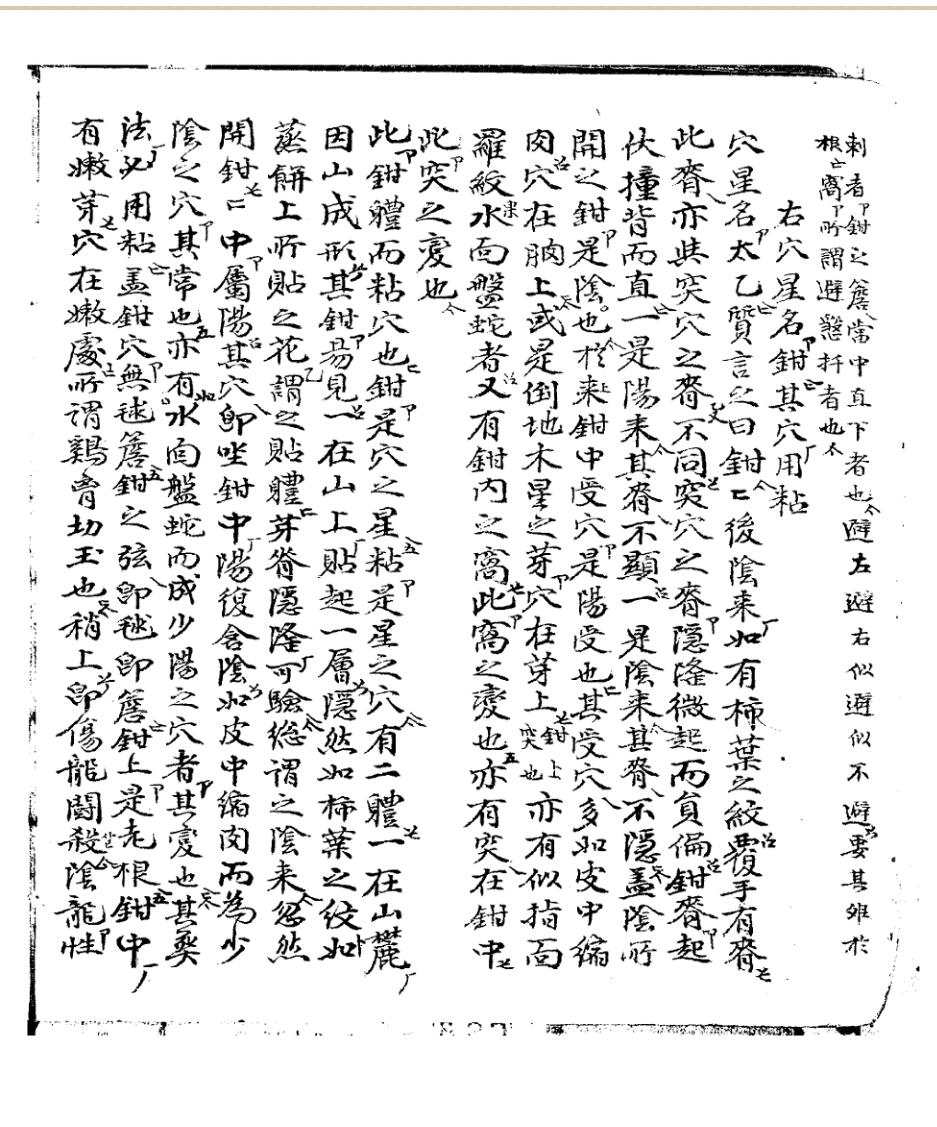 刺者卩鉗之簷當中直下者也亽避左避右似避似不避要其雖於
根亡窩卩所謂避懸扦者也亽
右穴星名鉗其穴用粘
穴星名太乙質言之曰鉗〻後陰來如有柿葉之紋覆手有脊
此脊亦與突穴之脊不同突穴之脊隱隆微起而負偏鉗脊起
伏撞背而直一是陽来其脊不顯一是陰来其脊不隱盖陰所
開之鉗是陰也於来鉗中受穴是陽受也其受穴多如皮中縮
肉穴在胸上或是倒地木星之芽穴在芽上鉗上突也亦有似指面
羅紋水面盤蛇者又有鉗內之窩此窩之變也亦有突在鉗中
此突之變也
此鉗體而粘穴也鉗是穴之星粘是星之穴有二體一在山麓
因山成形其鉗昜見一在山上貼起一層隱然如柿葉之紋如
蒸餠上所貼之花謂之貼體芽脊隱隆可驗総謂之陰来忽然
開鉗〻中屬陽其穴卽坐鉗中陽復含陰如皮中縮肉而為少
陰之穴其常也亦有水面盤蛇而成少陽之穴者其變也其葬
法必用粘盖鉗穴無毬簷鉗之弦卽毬卽簷鉗上是老根鉗中
有嫩芽穴在嫩處所謂鷄膏切玉也稍上卽傷龍鬪殺陰龍性